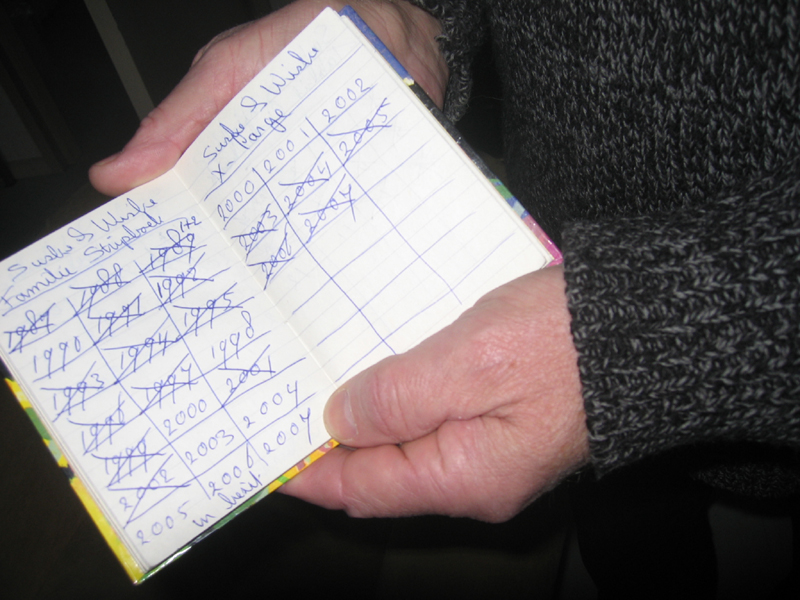 Suske & Wiske
Familie Stripboek
1987 1988 1989 1+2
1990 1991 1992
1993 1994 1995
1996 1997 1998
1999 2000 2001
2002 2003 2004
2005 2006 2007
in
Suske & Wiske
X-Large
2000 2001 2002
2003 2004 2005
2006 2007